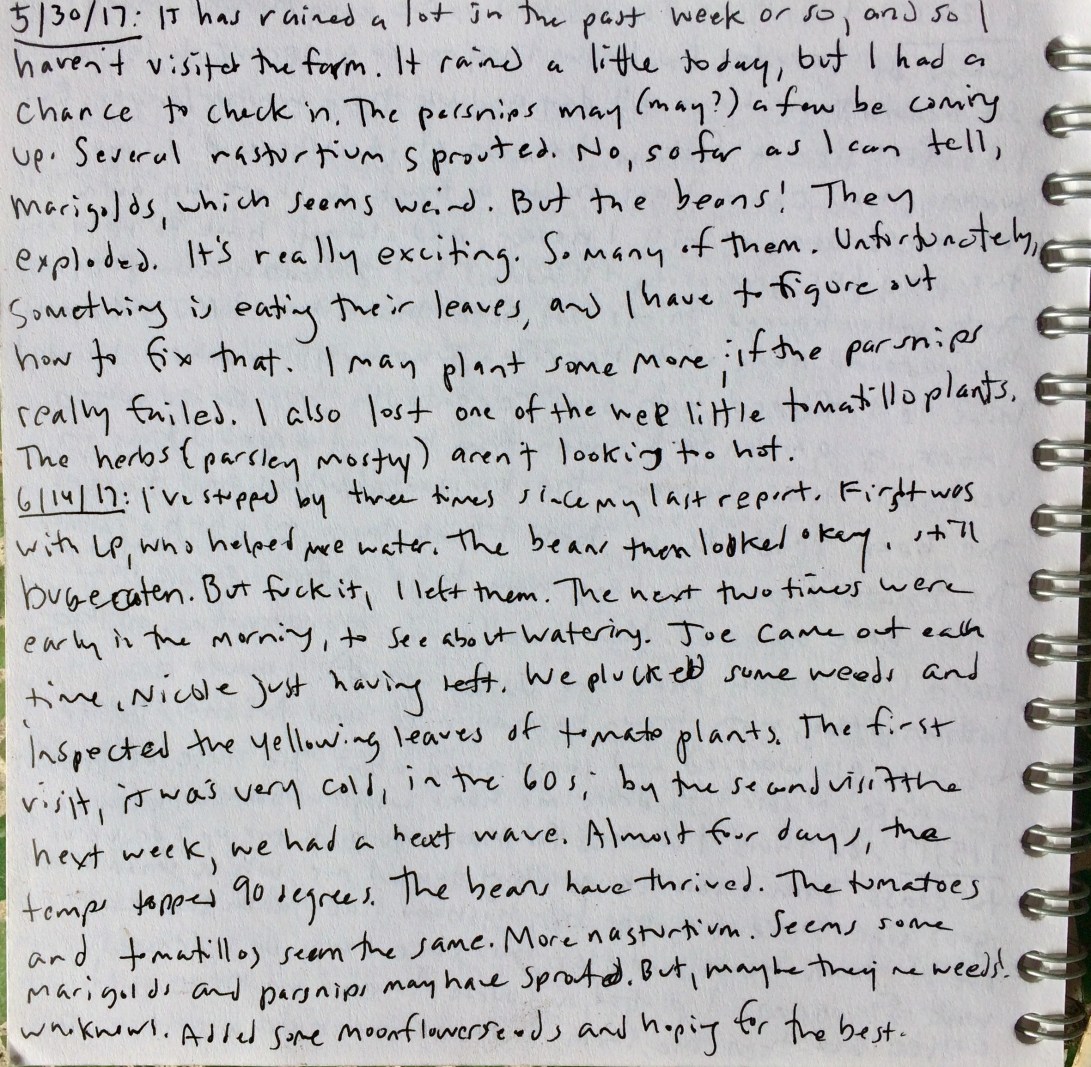 5/30/17: It has rained a lot in the past week or so, and so I
haven't visited the farm. It rained a little today, but I had a
chance to check in. The parsnips may (may?) a few be coming
up. Several nasturtium sprouted. No, so far as I can tell,
marigolds, which seems weird. But the beans! They
exploded. It's really exciting. So many of them. Unfortunately,
something is eating their leaves, and I have to figure out
how to fix that. I may plant some more, if the parsnips
really failed. I also lost one of the wee little tomatillo plants.
The herbs (parsley mostly) aren't looking too hot.
6/14/17: I've stopped by three times since my last report. First was
with LP, who helped me water. The beans then looked okay. still
bug eaten. But fuck it, I left them. The next two times were
early in the morning, to see about watering. Joe came out each
time, Nicole just having left. We plucked some weeds and
inspected the yellowing leaves of tomato plants. The first
visit, it was very cold, in the 60s; by the second visit the
next week, we had a heat wave. Almost four days, the
temps topped 90 degrees. The beans have thrived. The tomatoes
and tomatillos seem the same. More nasturtium. Seems some
marigolds and parsnips may have sprouted. But, maybe they're weeds!
unknown. Added some moonflower seeds and hoping for the best.